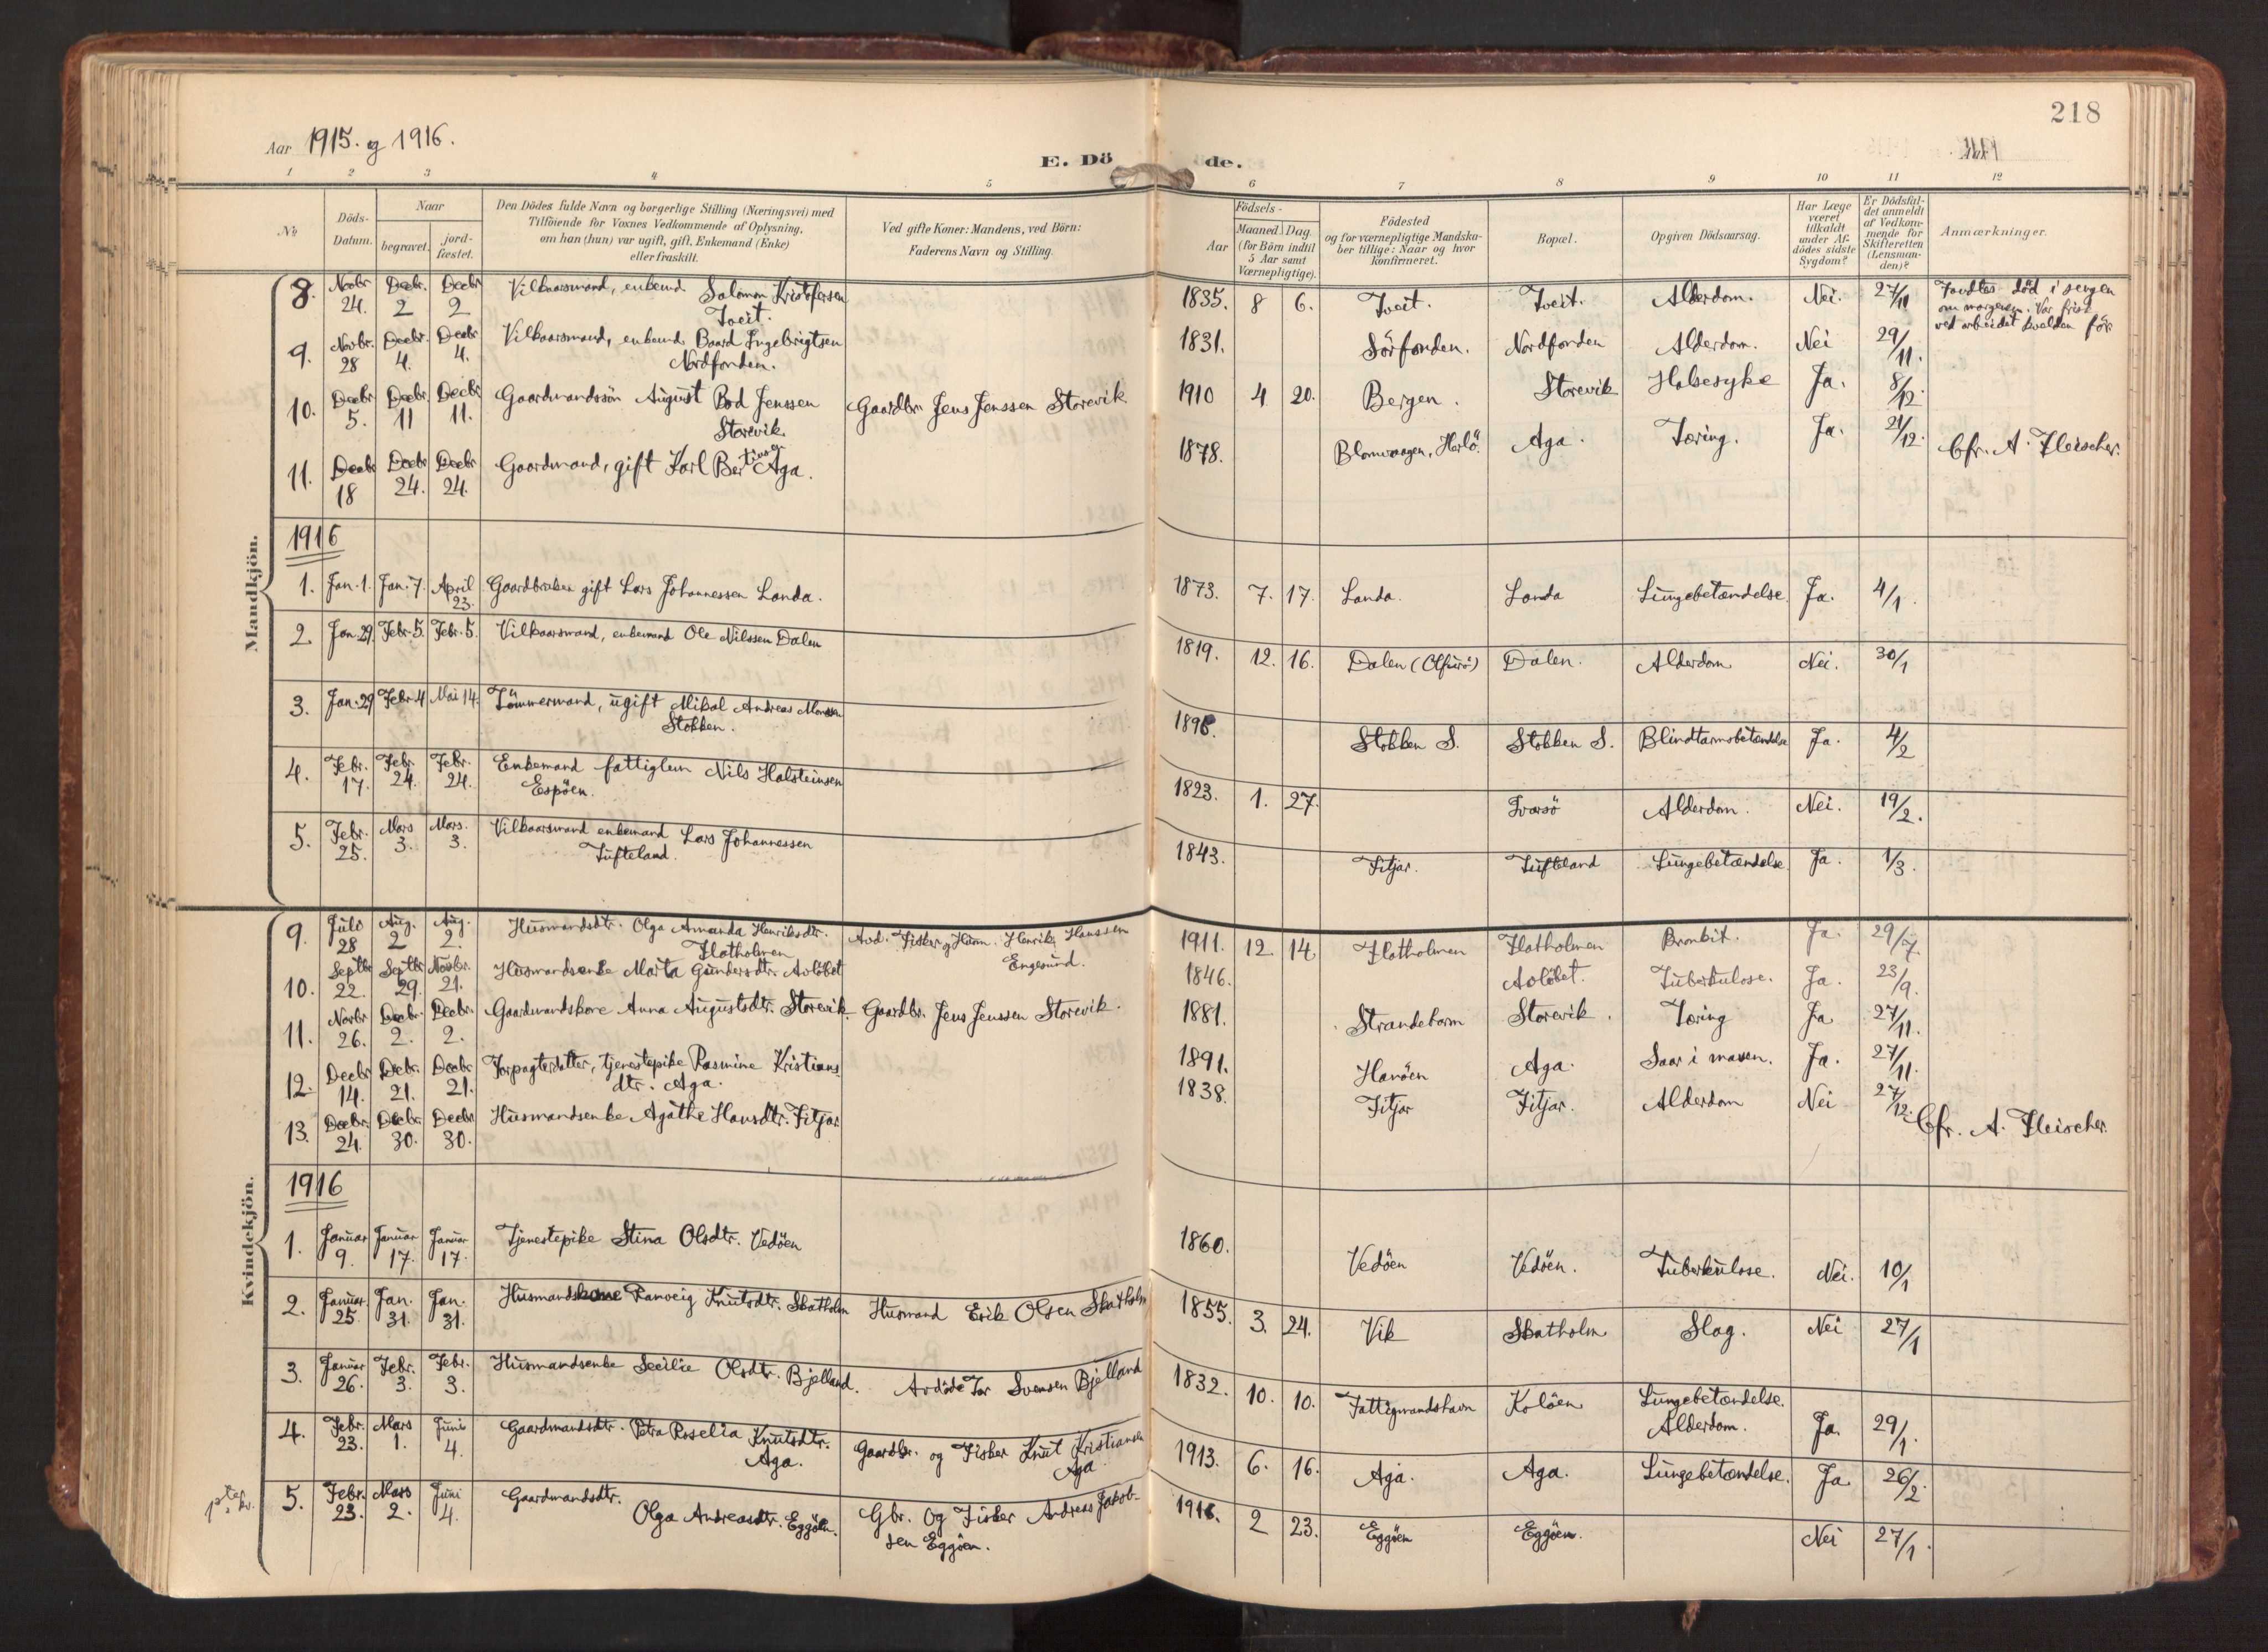 218
Aar 1915. og 1916.
E. Döde.
1 2 3 4 5 6 7 8 9 10 11 12
No
Döds-Datum.
Naar
begravet.
jord-fæstet.
Den Dödes fulde Navn og borgerlige Stilling (Næringsvei) med
Tilföiende for Voxnes Vedkommende af Oplysning,
om han (hun) var ugift, gift, Enkemand (Enke)
eller fraskilt.
Ved gifte Koner: Mandens, ved Börn:
Faderens Navn og Stilling.
Födsels-
Aar
Maaned. Dag.
(for Börn indtil
5 Aar samt
Værnepligtige).
Födested
og for værnepligtige Mandska-
ber tillige: Naar og hvor
Konfirmeret.
Bopæl.
Opgiven Dödsaarsag.
Har Læge
været
tilkaldt
under Af-
dödes sidste
Sygdom?
Er Dödsfal-
det anmeldt
af Vedkom-
mende for
Skifteretten
(Lensman-
den)?
Anmærkninger.
Mandkjön.
8. Novbr. 24. Decbr. 2 Decbr. 2 Vilkaarsmand, enkemd. Salomon Kristofersen Tveit. 1835. 8 6. Tveit. Tveit. Alderdom. Nei. 27/11 Fandtes död i sengen om morgenen. Var frisk ved arbeidet kvelden för.
9. Novbr. 28 Decbr. 4. Decbr. 4. Vilkaarsmand, enkemd. Baard Ingebrigtsen Nordfonden. 1831. Sörfonden. Nordfonden Alderdom. Nei 29/11.
10. Decbr 5. Decbr. 11 Decbr 11. Gaardmandssön August Bod Jenssen Storevik. Gaardbr. Jens Jenssen Storevik 1910 4 20. Bergen. Storevik Halsesyke Ja. 8/12.
11. Decbr 18 Decbr 24. Decbr 24. Gaardmand, gift Karl Bertinsen Aga. 1878. Blomvaagen, Herlö. Aga. Tæring. Ja. 21/12. Cfr. A. Fleischer.
1916
1. Jan. 1. Jan. 7. April 23. Gaardbruker gift Lars Johannessen Landa. 1873. 7. 17. Landa. Landa Lungebetændelse. Ja. 4/1.
2. Jan. 29. Febr. 5. Febr. 5. Vilkaarsmand, enkemand Ole Nilssen Dalen 1819. 12. 16. Dalen Dalen. Alderdom Nei. 30/1
3. Jan. 29 Febr. 4 Mai 14. Tömmermand, ugift Mikal Andreas Monssen Stokken. Stokken S. Stokken S. Blindtarmsbetændelse Ja. 4/2
4. Febr. 17. Febr. 24. Febr. 24. Enkemand fattiglem Nils Halsteinsen Espöen. 1823. 1. 27. Ivarsö Alderdom. Nei. 19/2.
5. Febr. 25. Mars 3. Mars. 3. Vilkaarsmand enkemand Lars Johannessen Tufteland. 1843. Fitjar. Tufteland Lungebetændelse. Ja. 1/3.
Kvindekjön.
9. Juli 28 Aug. 2 Aug. 2. Husmandsdtr. Olga Amanda Henriksdtr. Flatholmen Avd. Fisker og Husm. Henrik Hanssen Engesund. 1911. 12. 14. Flatholmen Flatholmen Bronkit. Ja. 29/7.
10. Septbr 22. Septbr 29. Novbr. 21. Husmandsenke Marta Gundersdtr. Aolöbet 1846. Aolöbet. Tuberkulose. Ja. 23/9.
11. Novbr 26. Decbr. 2. Decbr. 2. Gaardmandskone Anna Augustsdtr. Storevik. Gaardbr. Jens Jenssen Storevik. 1881. Strandebarm Storevik. Tæring Ja 27/11.
12. Decbr 14. Decbr. 21. Decbr 21. Forpagterdatter, tjenestepike Rasmine Kristians dtr. Aga. 1891. Hanöen Aga. Saar i maven. Ja. 27/11.
13. Decbr. 24. Decbr. 30. Decbr 30. Husmandsenke Agathe Hansdtr. Fitjar 1838. Fitjar Fitjar. Alderdom Nei 27/12. Cfr. A. Fleischer.
1916
1. Januar 9. Januar 17. Januar 17. Tjenestepike Stina Olsdtr. Vedöen 1860. Vedöen Vedöen. Tuberkulose. Nei. 10/1
2. Januar 25. Jan. 31. Jan. 31. Husmandskone Ranveig Knutsdtr. Skatholm Husmand Erik Olsen Skatholm 1855. 3. 24. Vik Skatholm Slag. Nei 27/1
3. Januar 26. Febr. 3. Febr. 3. Husmandsenke Secilie Olsdtr. Bjelland. Avdöde Tor Svensen Bjelland 1832. 10. 10. Fattigmandshavn Kolöen Lungebetændelse. Alderdom. Ja. 29/1.
4. Febr. 23. Mars 1. Juni 4. Gaardmandsdtr. Petra Roselia Knutsdtr. Aga. Gaardbr. og Fisker Knut Kristiansen Aga 1913. 6. 16. Aga. Aga. Lungebetændelse. Ja. 26/2.
5. Febr. 23. Mars 2. Juni 4. Gaardmandsdtr. Olga Andreasdtr. Eggöen. Gbr. og Fisker Andreas Jakobsen Eggöen. 1916. 2 23. Eggöen Eggöen. Nei 27/1.